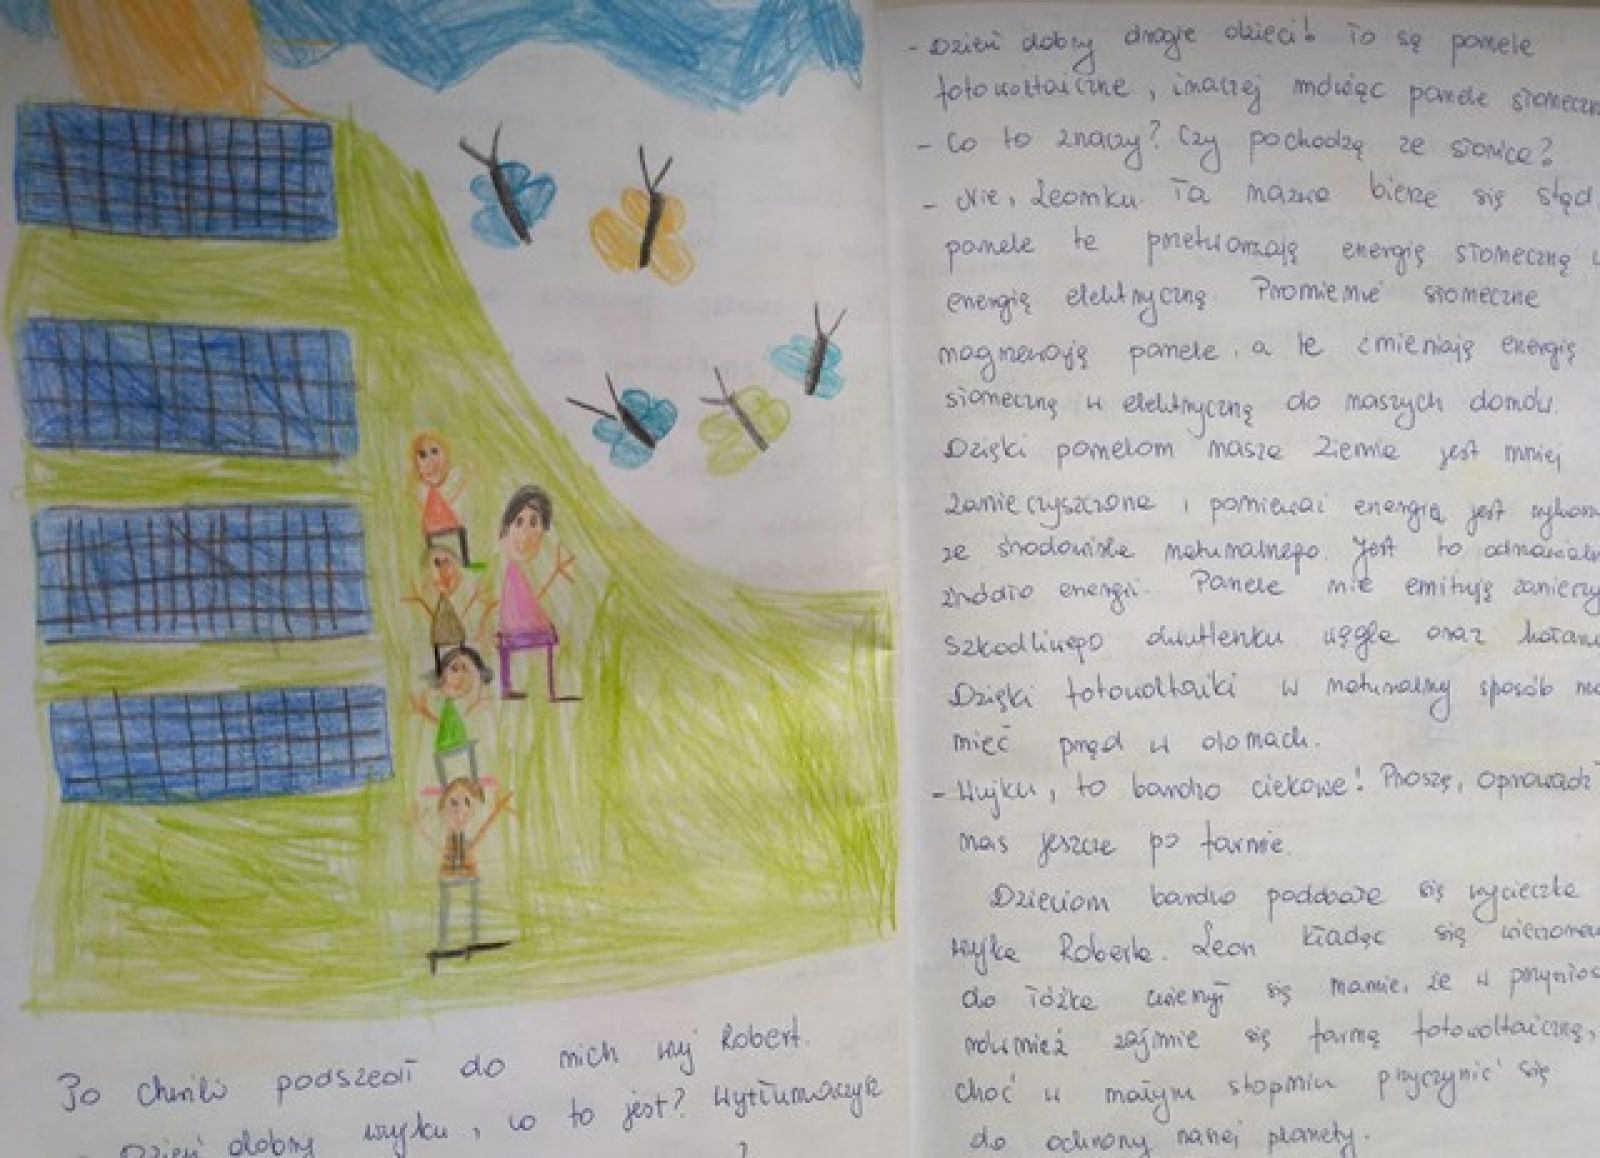 Po chwili podszedł do nich wuj Robert.
- Dzień dobry wujku, co to jest? Wytłumaczysz
?
- Dzień dobry drogie dzieci! To są panele
fotowoltaiczne, inaczej mówiąc panele słoneczn
- Co to znaczy? Czy pochodzą ze słońca?
- Nie, Leonku. Ta nazwa bierze się stąd,
panele te przetwarzają energię słoneczną w
energię elektryczną. Promienie słoneczne
nagrzewają panele, a te zmieniają energię
słoneczną w elektryczną do naszych domów.
Dzięki panelom nasza Ziemia jest mniej
zanieczyszczona i ponieważ energia jest wykorz
ze środowiska naturalnego. Jest to odnawialn
źródło energii. Panele nie emitują zanieczy
szkodliwego dwutlenku węgla oraz hałasu
Dzięki fotowoltaiki w naturalny sposób mo
mieć prąd w domach.
- Wujku, to bardzo ciekawe! Proszę, oprowadź
nas jeszcze po farmie.
Dzieciom bardzo podobała się wycieczka
wujka Roberta. Leon kładąc się wieczorem
do łóżka zwierzył się mamie, że w przyszłoś
również zajmie się farmą fotowoltaiczną,
choć w małym stopniu przyczynić się
do ochrony naszej planety.